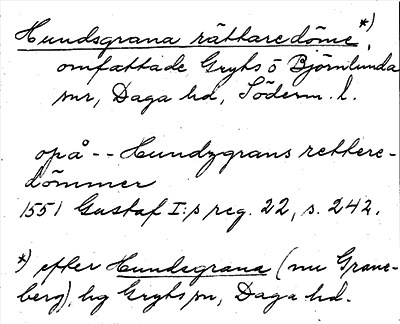 Hundsgrana rättaredöme *),
omfattade Gryts o Björnlunda
snr, Daga hd, Söderm. l.
opå -- Hundzgrans rettere-
dömmer
1551 Gustaf I:s reg. 22, s. 242.
*) efter Hundsgrana (nu Grane-
berg), hg Gryts sn, Daga hd.